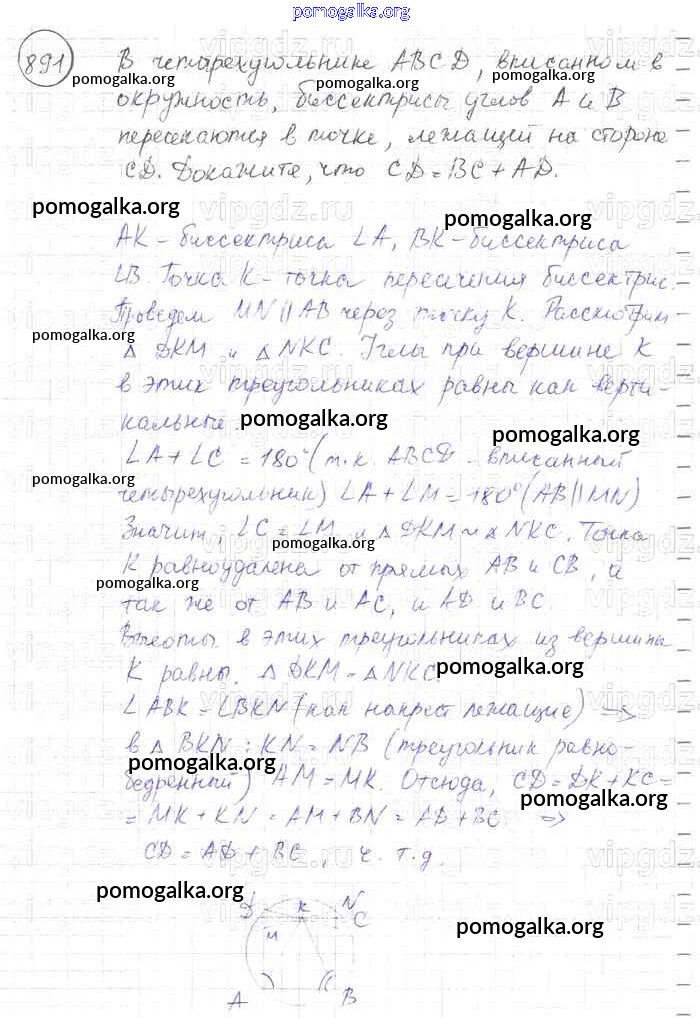 pomogalka.org
891 В четырехугольнике ABCD, вписанном в
pomogalka.org pomogalka.org pomogalka.org
окружность, биссектрисы углов A и B
пересекаются в точке, лежащей на стороне
CD. Докажите, что CD = BC + AD.
pomogalka.org pomogalka.org
AK - биссектриса ∠A, BK - биссектриса
∠B. Точка K - точка пересечения биссектрис.
Проведем MN || AB через точку K. Рассмотрим
pomogalka.org
△ DKM и △ NKC. Углы при вершине K
в этих треугольниках равны как верти-
кальные.
pomogalka.org pomogalka.org
∠A + ∠C = 180° (т.к. ABCD - вписанный
pomogalka.org
четырехугольник) ∠A + ∠M = 180° (AB || MN)
Значит, ∠C = ∠M и △ DKM ~ △ NKC. Точка
pomogalka.org
K равноудалена от прямых AB и CB, а
pomogalka.org
так же от AB и AC, и AD и BC.
Высоты в этих треугольниках из вершины
K равны. △ DKM = △ NKC.
pomogalka.org
∠ ABK = ∠BKN (как накрест лежащие) =>
в △ BKN: KN = NB (треугольник равно-
pomogalka.org
бедренный) AM = MK. Отсюда, CD = DK + KC =
pomogalka.org
= MK + KN = AM + BN = AD + BC. =>
CD = AD + BC, ч. т. д.
pomogalka.org
D K N
C
M
pomogalka.org
A B
vipgdz.ru